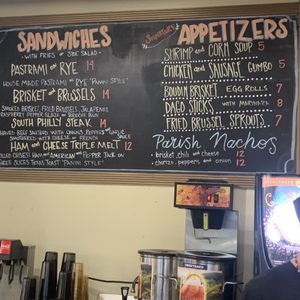 SANDWICHES
WITH FRIES or SIDE SALAD
PASTRAMI on RYE 14
HOUSE MADE PASTRAMI on RYE "PANINI STYLE"
BRISKET and BRUSSELS 14
SMOKED BRISKET, FRIED BRUSSELS, JALAPENOS,
RASPBERRY PEPPER GLAZE on
SOUTH PHILLY STEAK 14
SHAVED BEEF SAUTEED with ONIONS, PEPPERS and GARLIC
SMOTHERED with CHEESE on FRENCH
HAM and CHEESE TRIPLE MELT 12
HAM and AMERICAN and PEPPER JACK on
TEXAS TOAST "PANINI STYLE"
APPETIZERS
SHRIMP and CORN SOUP 5
CHICKEN and SAUSAGE GUMBO 5
BOUDIN BRISKET EGG ROLLS 7
DAGO STICKS with MARINARA 8
FRIED BRUSSEL SPROUTS 7
Parish Nachos
- brisket, chili and cheese 12
- chorizo, peppers, and onion 12